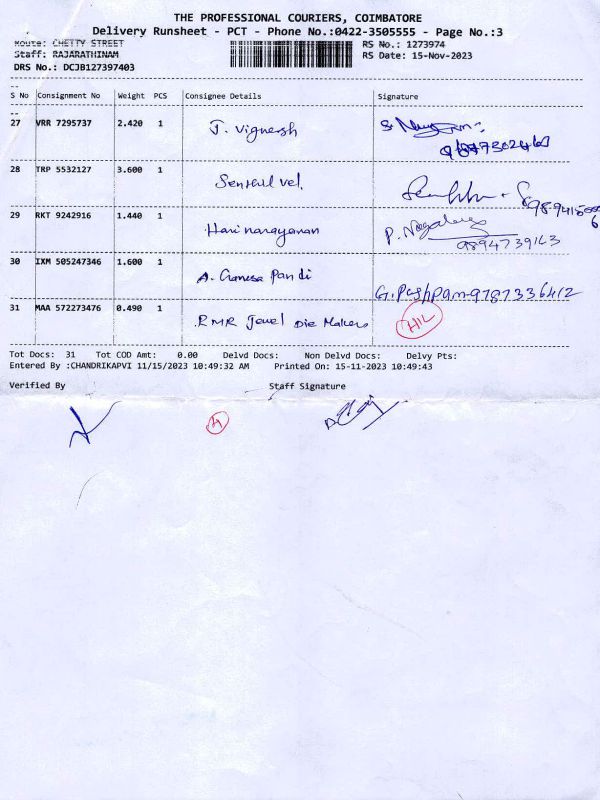 THE PROFESSIONAL COURIERS, COIMBATORE
Delivery Runsheet - PCT - Phone No.:0422-3505555 - Page No.:3
Route: CHETTY STREET RS No.: 1273974
Staff: RAJARATHINAM RS Date: 15-Nov-2023
DRS No.: DCJB127397403
S No Consignment No Weight PCS Consignee Details Signature
27 VRR 7295737 2.420 1 J. Vignersh
28 TRP 5532127 3.600 1 Senthil vel.
29 RKT 9242916 1.440 1 Hari narayanan P. Nagalaxmi
9894739163
30 IXM 505247346 1.600 1 A. Ganesa Pandi G. Pushpam-9787336412
31 MAA 572273476 0.490 1 RMR Jewel Die Makers H/L
Tot Docs: 31 Tot COD Amt: 0.00 Delvd Docs: Non Delvd Docs: Delvy Pts:
Entered By :CHANDRIKAPVI 11/15/2023 10:49:32 AM Printed On: 15-11-2023 10:49:43
Verified By Staff Signature